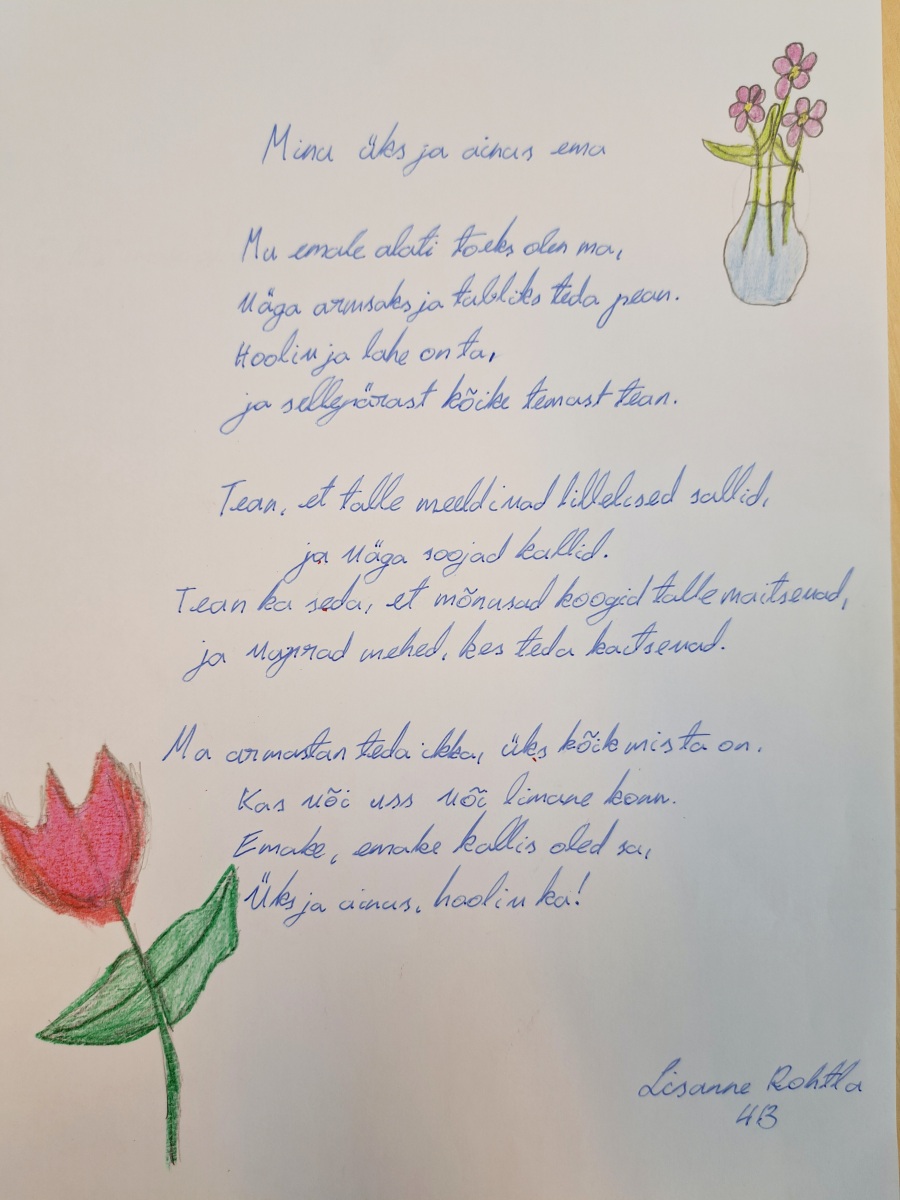 Minu üks ja ainus ema
Mu emale alati toeks olen ma,
Väga armsaks ja tubliks teda pean.
Hooliv ja lahe on ta,
ja sellepärast kõike temast tean.
Tean, et talle meeldivad lillelised sallid,
ja väga soojad kallid.
Tean ka seda, et mõnusad koogid talle maitsevad,
ja vaprad mehed, kes teda kaitsevad.
Ma armastan teda ikka, üks kõik mis ta on.
Kas või uss või limane konn.
Emake, emake kallis oled sa,
Üks ja ainus, hooliv ka!
Lisanne Rohtla
4B